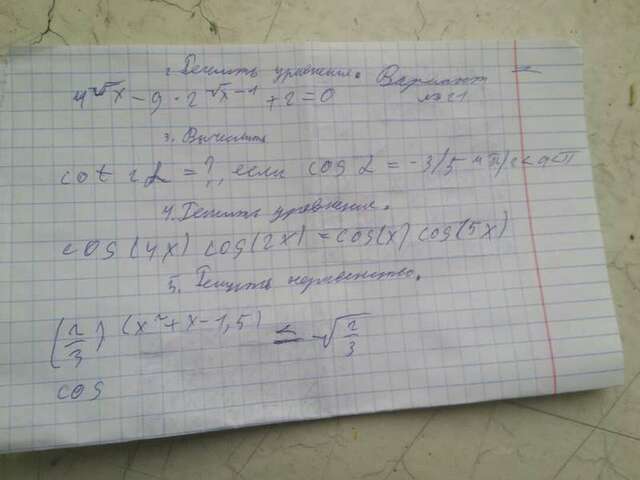 2. Решить уравнение. Вариант
4^√x - 9 · 2^√x-1 + 2 = 0 №21
3. Вычислить
cot 2α = ?, если cos α = -3/5 и π/2 < α < π
4. Решить уравнение.
cos(4x) cos(2x) = cos(x) cos(5x)
5. Решить неравенство.
(2/3)^(x²+x-1,5) ≤ √2/3
cos